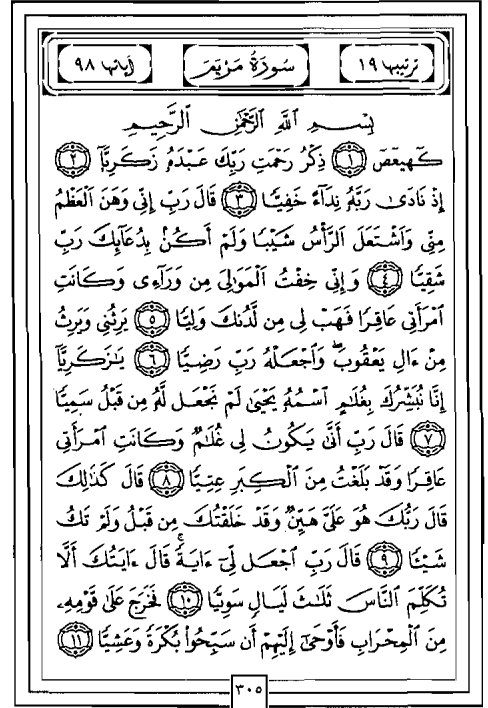 ترتيبها ١٩ سورة مريم آياتها ٩٨
بِسْمِ ٱللَّهِ ٱلرَّحْمَٰنِ ٱلرَّحِيمِ
كٓهيعٓصٓ ١ ذِكْرُ رَحْمَتِ رَبِّكَ عَبْدَهُۥ زَكَرِيَّآ ٢
إِذْ نَادَىٰ رَبَّهُۥ نِدَآءً خَفِيًّا ٣ قَالَ رَبِّ إِنِّى وَهَنَ ٱلْعَظْمُ
مِنِّى وَٱشْتَعَلَ ٱلرَّأْسُ شَيْبًا وَلَمْ أَكُنۢ بِدُعَآئِكَ رَبِّ
شَقِيًّا ٤ وَإِنِّى خِفْتُ ٱلْمَوَٰلِىَ مِن وَرَآءِى وَكَانَتِ
ٱمْرَأَتِى عَاقِرًا فَهَبْ لِى مِن لَّدُنكَ وَلِيًّا ٥ يَرِثُنِى وَيَرِثُ
مِنْ ءَالِ يَعْقُوبَ ۖ وَٱجْعَلْهُ رَبِّ رَضِيًّا ٦ يَٰزَكَرِيَّآ
إِنَّا نُبَشِّرُكَ بِغُلَٰمٍ ٱسْمُهُۥ يَحْيَىٰ لَمْ نَجْعَل لَّهُۥ مِن قَبْلُ سَمِيًّا
٧ قَالَ رَبِّ أَنَّىٰ يَكُونُ لِى غُلَٰمٌ وَكَانَتِ ٱمْرَأَتِى
عَاقِرًا وَقَدْ بَلَغْتُ مِنَ ٱلْكِبَرِ عِتِيًّا ٨ قَالَ كَذَٰلِكَ
قَالَ رَبُّكَ هُوَ عَلَىَّ هَيِّنٌ وَقَدْ خَلَقْتُكَ مِن قَبْلُ وَلَمْ تَكُ
شَيْـًٔا ٩ قَالَ رَبِّ ٱجْعَل لِّىٓ ءَايَةً ۚ قَالَ ءَايَتُكَ أَلَّا
تُكَلِّمَ ٱلنَّاسَ ثَلَٰثَ لَيَالٍ سَوِيًّا ١٠ فَخَرَجَ عَلَىٰ قَوْمِهِۦ
مِنَ ٱلْمِحْرَابِ فَأَوْحَىٰٓ إِلَيْهِمْ أَن سَبِّحُوا۟ بُكْرَةً وَعَشِيًّا ١١
٣٠٥